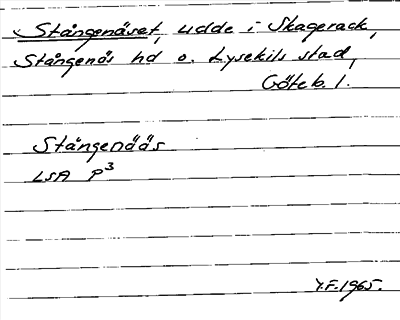 Stångenäset, udde i Skagerack,
Stångenäs hd o. Lysekils stad,
Göteb. l.
Stångenääs
LSA P3
Y.F. 1965.